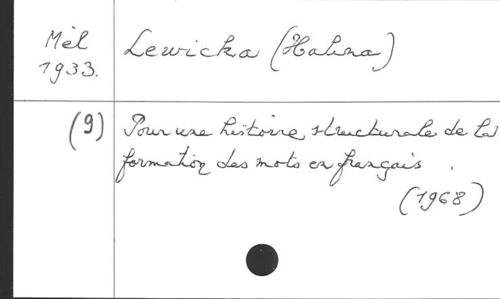 Mél Lewicka (Halina)
1933.
(9) Pour une histoire structurale de la
formation des mots en français.
(1968)